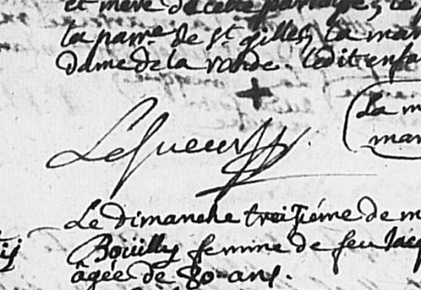 et mere de cette parroisse, le p
la parre de st gilles, la mar
dame de la ronde. l'edit enfa
+
(la m
Lesueur
mar
Le dimanche treisiéme de m
Bouilly femme de feu Jacq
âgée de 80 ans.